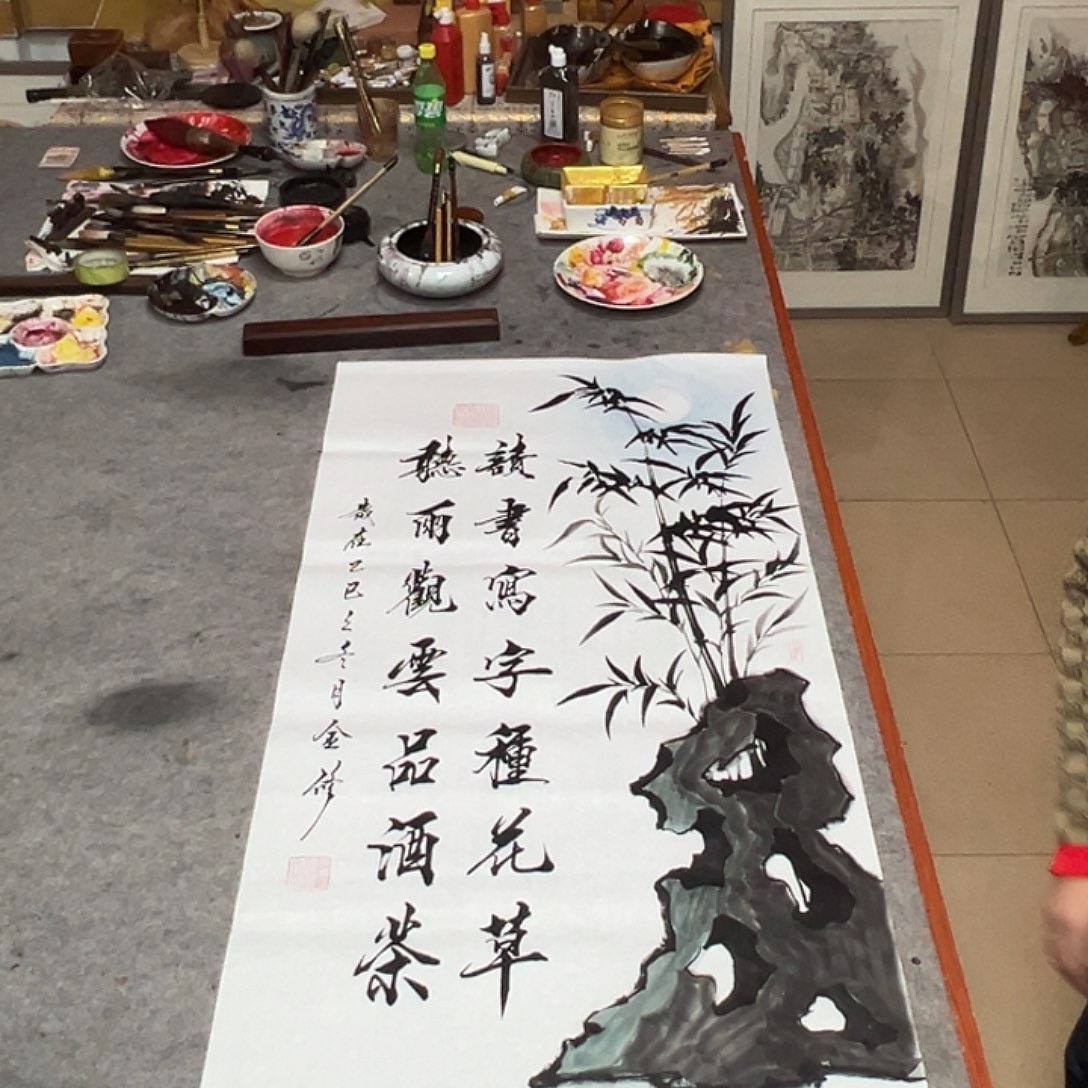 讀書寫字種花草
聽雨觀雲品酒茶
歲在乙巳之冬月金修